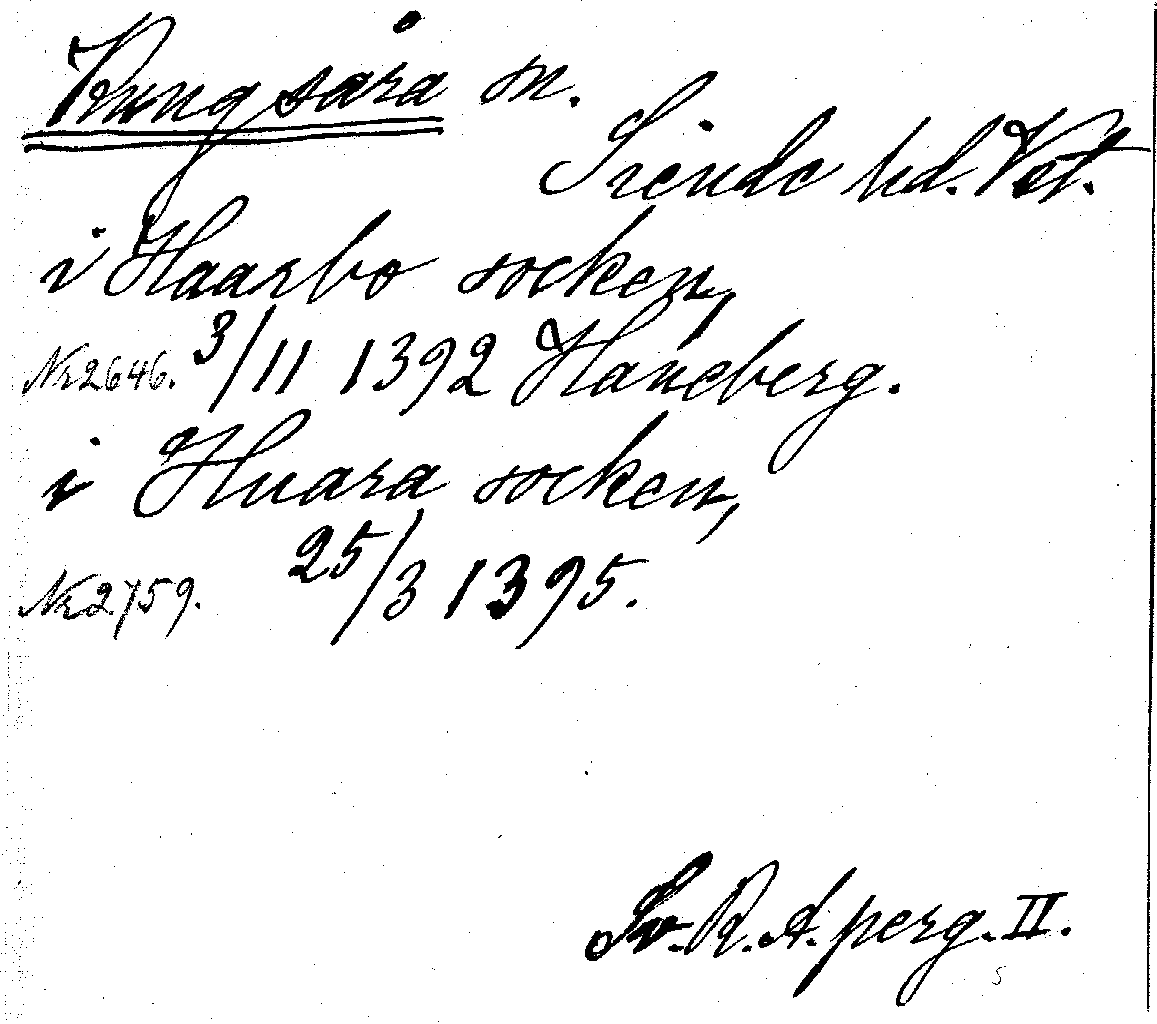 Kungsåra sn.
Siende hd. Vst.
i Haarbo socken,
Nr 2646. 3/11 1392 Haneberg.
i Huara socken,
Nr 2759. 25/3 1395.
Sv. R. A. perg. II.
s